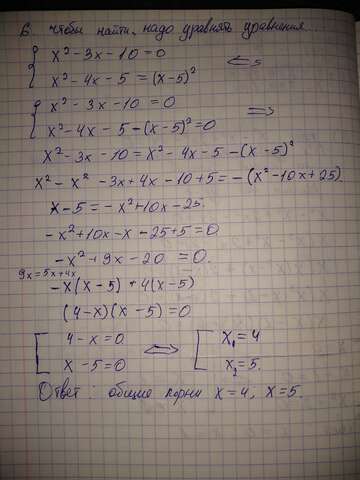 6. чтобы найти, надо уравнять уравнения...
{ x² - 3x - 10 = 0
{ x² - 4x - 5 = (x-5)² <=>
{ x² - 3x - 10 = 0
{ x² - 4x - 5 - (x-5)² = 0 =>
x² - 3x - 10 = x² - 4x - 5 - (x-5)²
x² - x² - 3x + 4x - 10 + 5 = -(x² - 10x + 25)
x - 5 = -x² + 10x - 25.
-x² + 10x - x - 25 + 5 = 0
-x² + 9x - 20 = 0.
9x = 5x + 4x
-x(x-5) + 4(x-5)
(4-x)(x-5) = 0
[ 4 - x = 0 <=> [ x₁ = 4
[ x - 5 = 0 [ x₂ = 5.
Ответ: общие корни x = 4; x = 5.